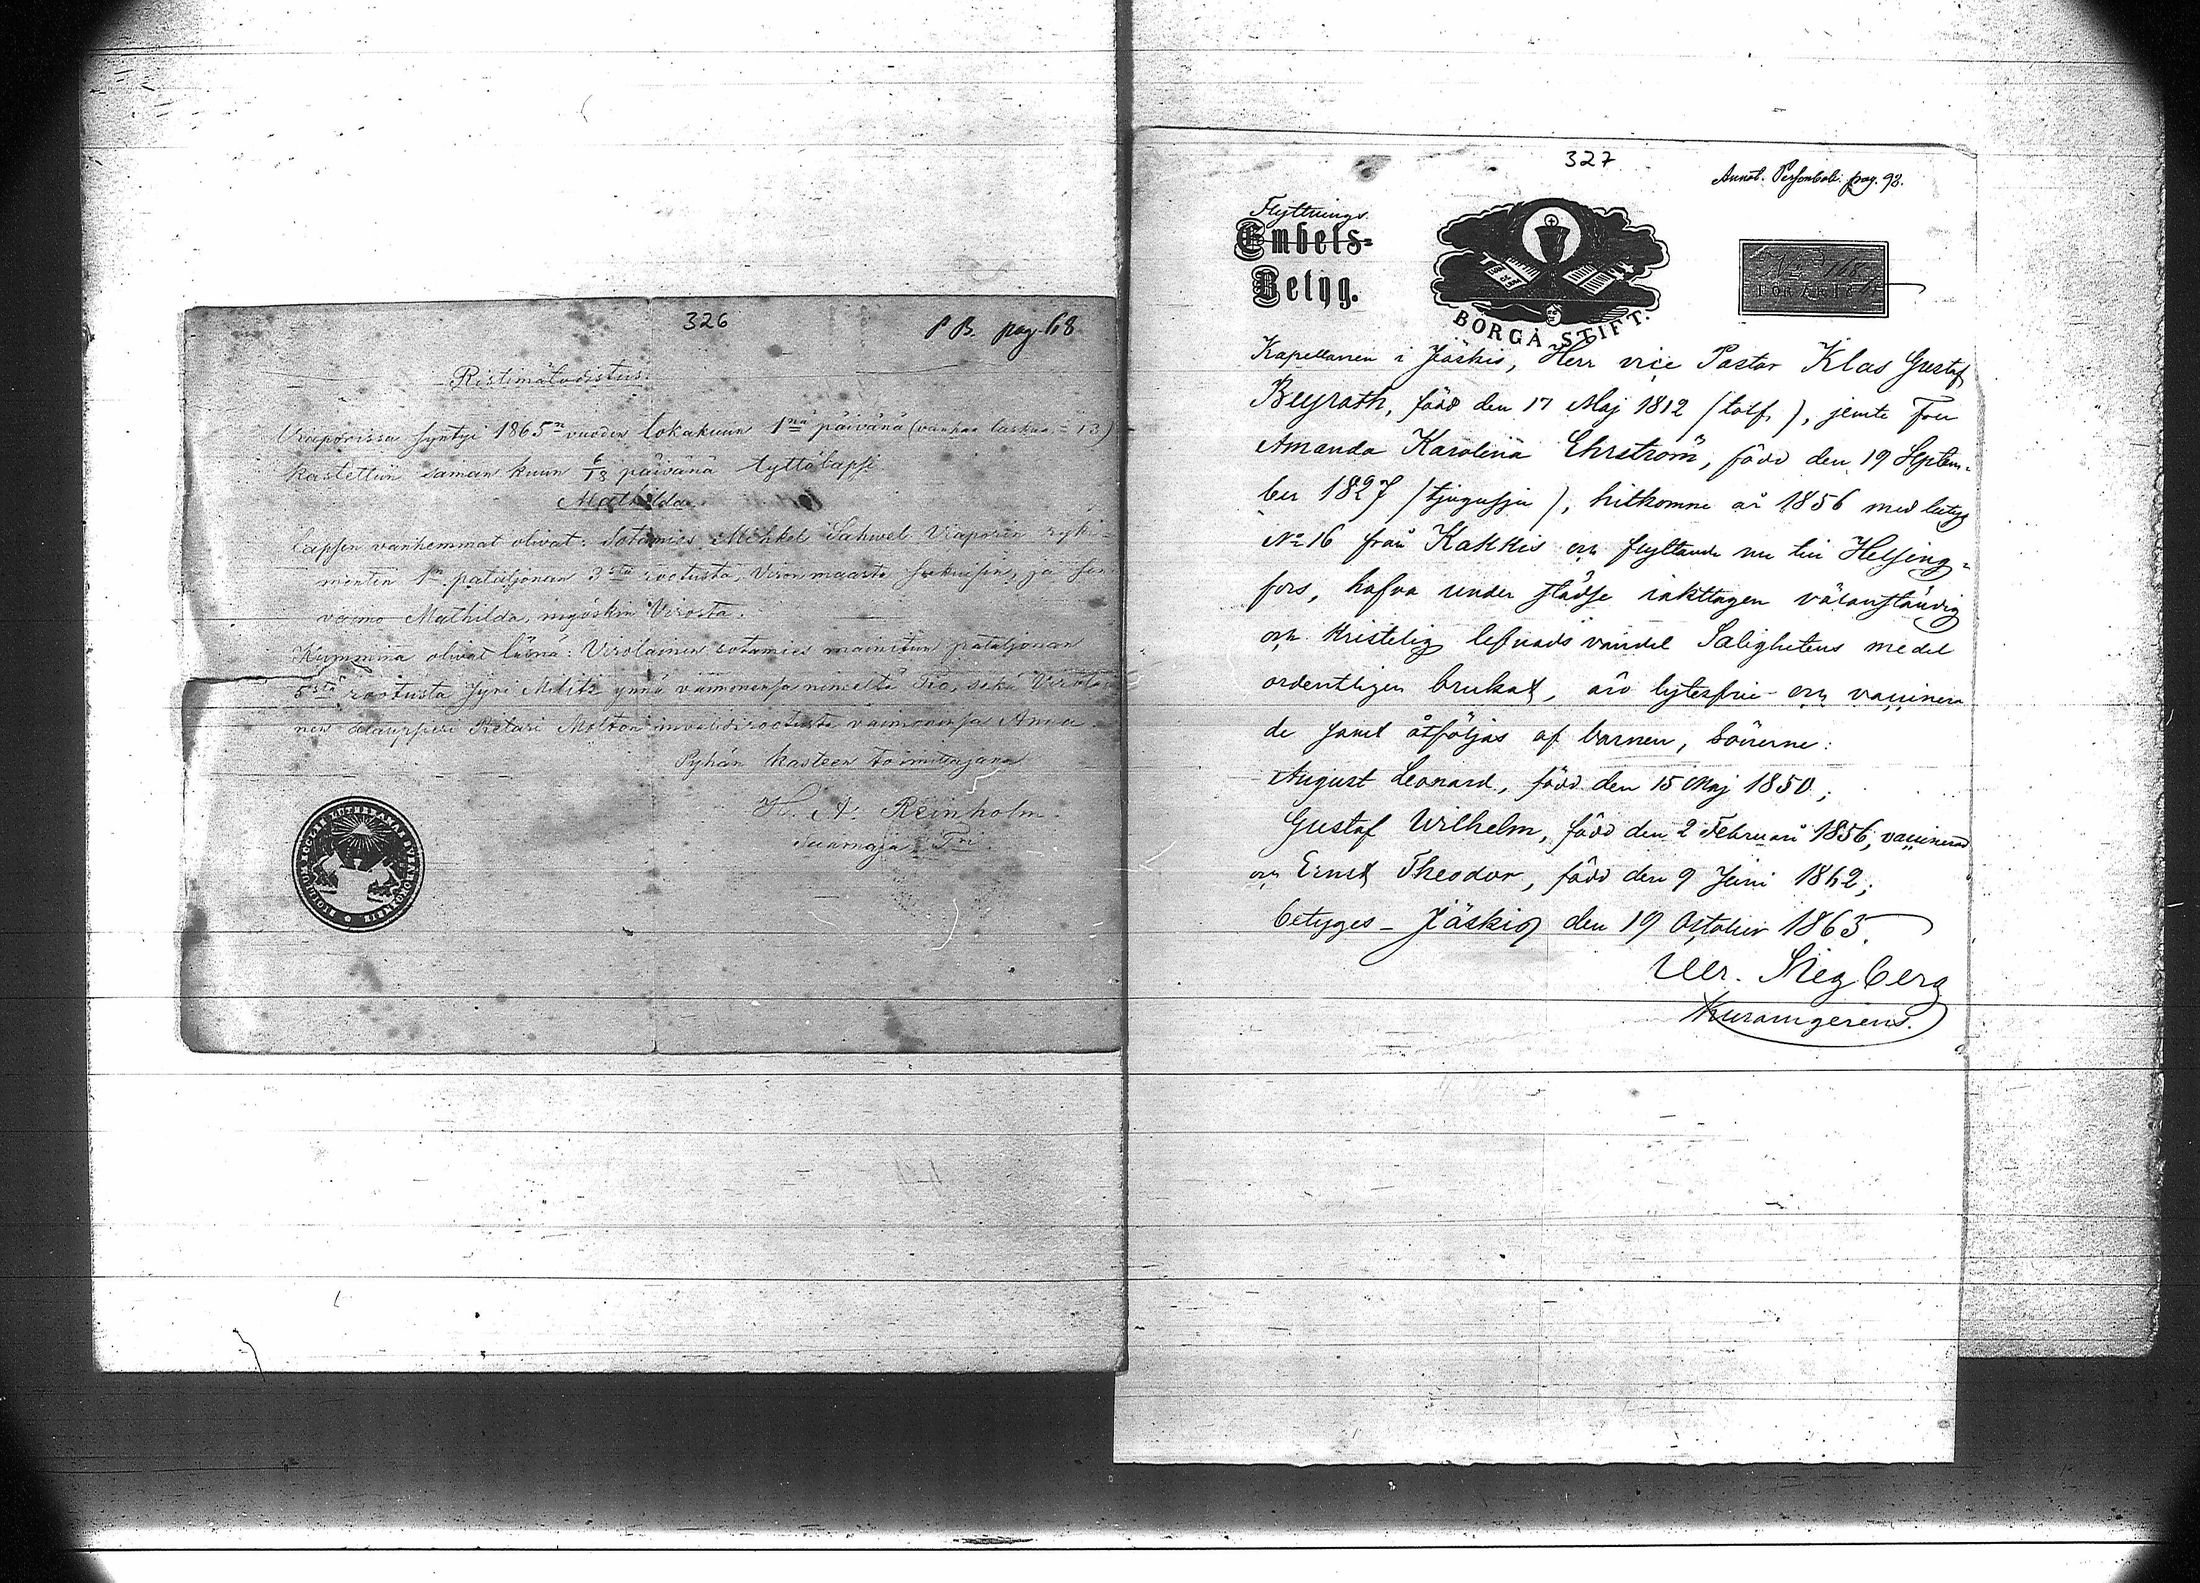 326
P B. pag 68
Ristimätodistus.
Viaporissa syntyi 1865n vuoden lokakuun 1nä päivänä (vanhaa laskua = 13)
kastettiin saman kuun 6/18 päivänä tyttölapsi
Mathilda.
lapsen vanhemmat olivat: Sotamies Mihkel Sahwel Viaporin ryk=
mentin 1n pataljonan 3sta rootusta, Vironmaasta
vaimo Mathilda, myöskin Virosta.
Kummina olivat läsnä: Virolainen sotamies mainitun pataljonan
5stä rootusta Jyri Militz ynnä vaimonensa nimeltä Tio, sekä Virolai
nen Petari Molton invalidirootusta vaimonensa Anna
Pyhän kasteen toimittajana
H. A. Reinholm.
SIGILLUM ECCLAE LUTHERANAE SVEABORGENSIS
327
Annot. Personbok. pag. 93.
Flyttnings
Embets=
Betyg.
BORGÅ STIFT.
No 118
Kapellanen i Jääskis, Herr vice Pastor Klas Gustaf
Beyrath, född den 17 Maj 1812 (tolf), jemte Fru
Amanda Karolina Ehrström, född den 19 Septem=
ber 1827 (tjugusju), hitkomne år 1856 med betyg
No 16 från Kakkis och flyttande nu till Helsing=
fors, hafva under städse iakttagen välanständig
och kristelig lefnads vandel Salighetens medel
ordentligen brukat, äro lytesfrie och vaccinera
de samt åtföljas af barnen, Sönerne:
August Leonard, född den 15 Maj 1850;
Gustaf Wilhelm, född den 2 Februari 1856, vaccinerad
och Ernst Theodor, född den 9 Juni 1862;
betyges – Jääskis den 19 October 1865.
Siegberg